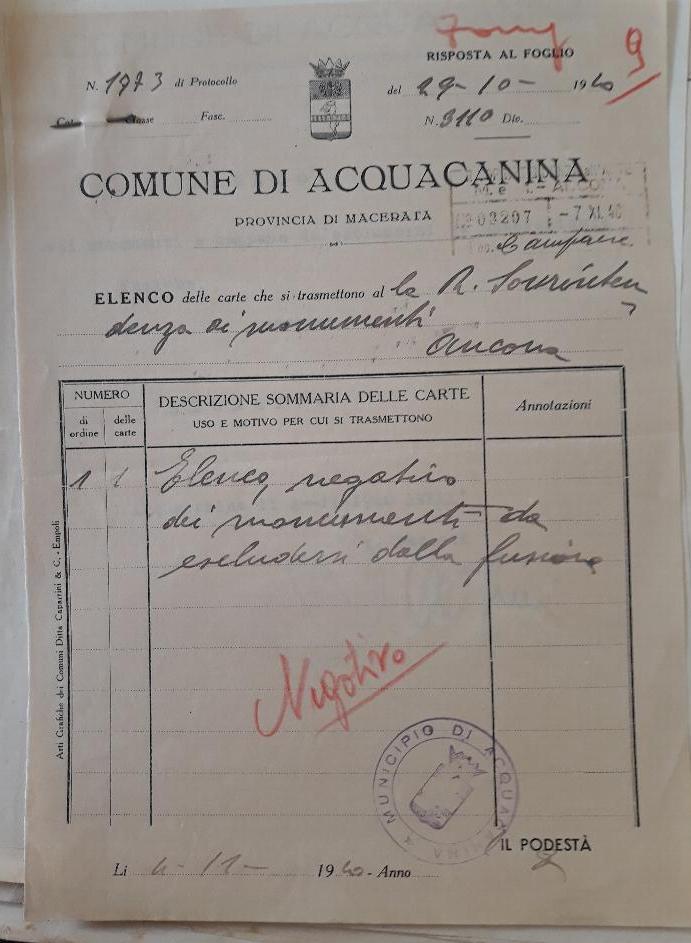 RISPOSTA AL FOGLIO
9
N. 1973 di Protocollo
del 29-10- 1940
Cat. Classe Fasc.
N. 3110 Div.
COMUNE DI ACQUACANINA
PROVINCIA DI MACERATA
03207 -7 XI. 40
ELENCO delle carte che si trasmettono al la R. Sovrinten
denza ai monumenti
Ancona
NUMERO
di ordine
delle carte
DESCRIZIONE SOMMARIA DELLE CARTE
USO E MOTIVO PER CUI SI TRASMETTONO
Annotazioni
1 1 Elenco negativo
dei monumenti da
escludersi dalla fusione
Negativo
MUNICIPIO DI ACQUACANINA
IL PODESTÀ
Li 4-11- 1940 - Anno
Arti Grafiche dei Comuni Ditta Caparrini & C. - Empoli